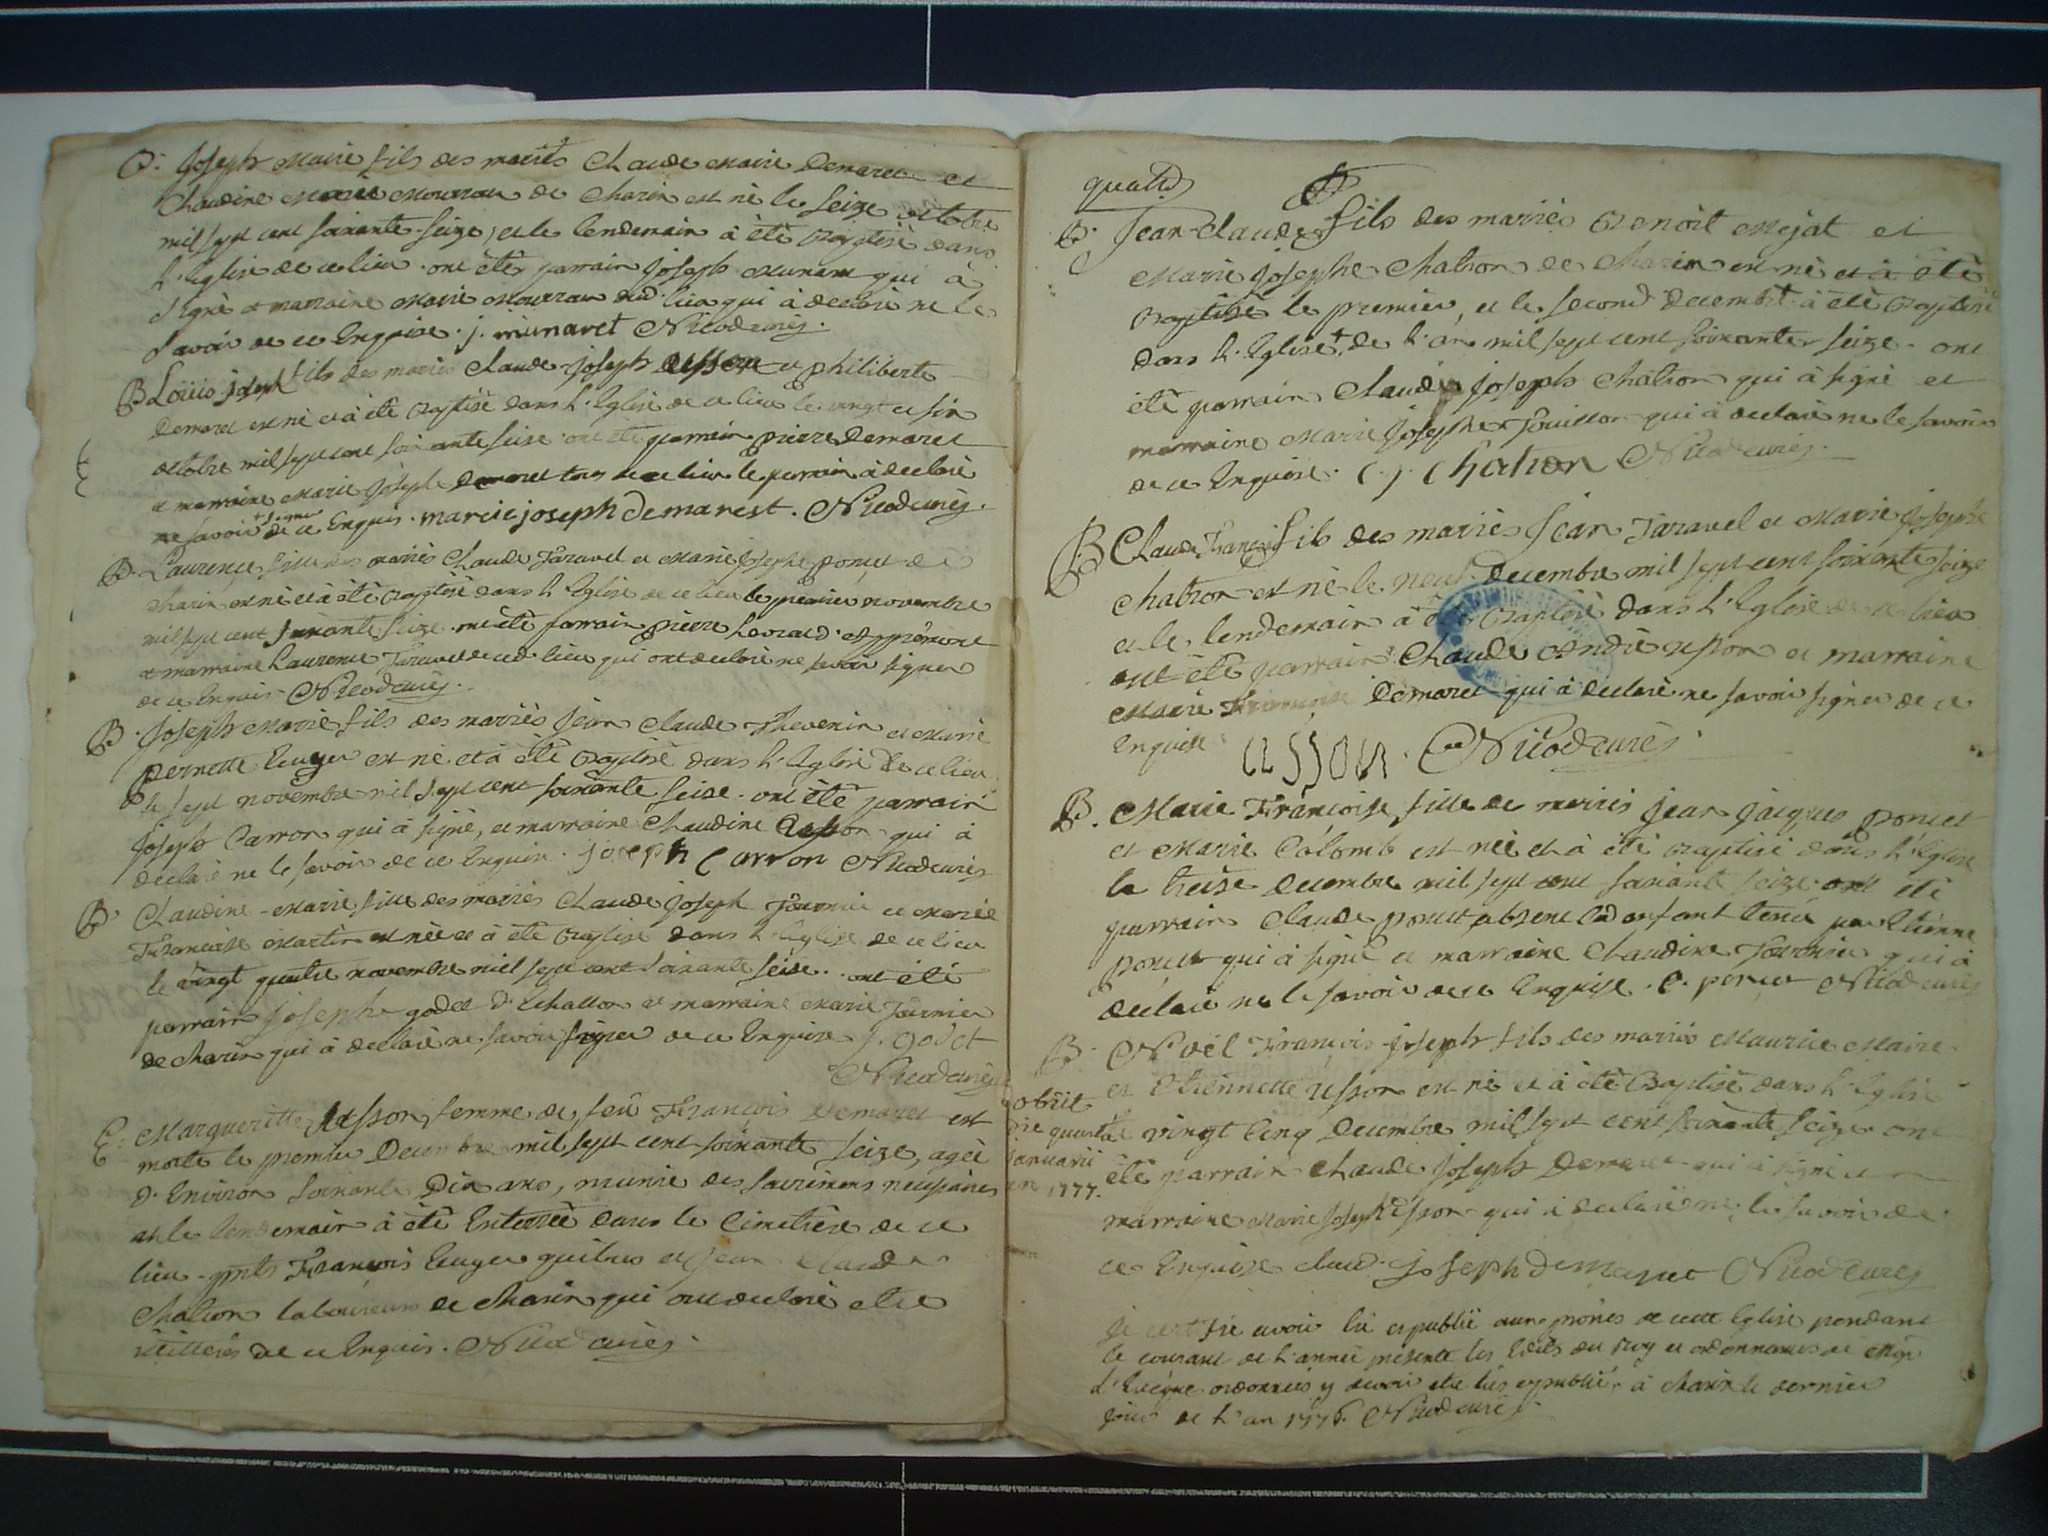 B. Joseph Marie fils des mariés Claude Marie Demaret et
Claudine Marie de Charix est né le seize octobre
mil sept cent soixante-seize, et le lendemain à été Baptisé dans
l'Eglise de ce lieu. ont étés parrain Joseph Munaret qui à
signé et marraine Marie dud. lieu qui à declaré ne le
savoir de ce Enquise. j. munaret Nicod curés.
B Loüis joseph fils des mariés Claude-Joseph et philiberte
Demaret est né et à été Baptisé dans l'Eglise de ce lieu le vingt et six
octobre mil sept cent soixante seise ont été parrain pierre Demaret
et marraine Marie Joseph Demaret tous de ce lieu le parrain à declaré
ne savoir signer de ce Enquis. marie joseph Demarest. Nicod curés.
B. Laurence fille des mariés Claude Taravel et Marie Josephe poncet de
Charix est né et à été Baptisé dans l'Eglise de ce lieu le premier novembre
mil sept cent soixante seize ont été parrain pierre d'appremont
et marraine Laurence Taravel de ced. lieu qui ont declaré ne savoir signer
de ce Enquis Nicod curés.
B. Joseph Marie fils des mariés Jean Claude Thevenin et Marie
pernette Euger est né et à été Baptisé dans l'Eglise de ce lieu
le sept novembre mil sept cent soixante seise. ont été parrain
Joseph Carron qui à signé, et marraine Claudine qui à
declaré ne le savoir de ce Enquise. joseph Carron Nicod curés
B. Claudine-Marie fille des mariés Claude Joseph Fournier et Marie
Françoise Martin est née et à été Baptisé dans l'Eglise de ce lieu
le vingt quatre novembre mil sept cent soixante seise. ont été
parrain Joseph godet d'Echallon et marraine Marie Fournier
de Charix qui à declaré ne savoir signer de ce Enquise J. godet
Nicod curés
E. Margueritte femme de feu François Demaret est
morte le premier Decembre mil sept cent soixante seize, agée
d'Environ soixante Dix ans, munie des sacremens necessaires
et le lendemain à été Enterrée dans le Cimetiere de ce
lieu. pnts François Euger et Jean Claude
Chatron laboureurs de Charix qui ont declaré etre
illitterés de ce Enquis. Nicod curés.
B. Jean-Claude fils des mariés Benoit Mejat et
Marie Josephe Chatron de Charix est né et à été
Baptisé le premier, et le second Decembre à été Baptisé
dans l'Eglise de l'an mil sept cent soixante seize. ont
été parrain Claude Joseph Chatron qui à signé et
marraine Marie Josephe qui à declaré ne le savoir
de ce Enquise. C. j. Chatron Nicod curés.
B Claude François fils des mariés Jean Taravel et Marie Josephe
Chatron est né le neuf Decembre mil sept cent soixante seize
et le lendemain à été Baptisé dans l'Eglise de ce lieu
ont été parrain Claude André et marraine
Marie Françoise Demaret qui à declaré ne savoir signer de ce
Enquise Nicod curés.
B. Marie Françoise fille de mariés Jean Jacques poncet
et Marie Colomb est née et à été Baptisé dans l'Eglise
le treise Decembre mil sept cent soixante seize ont été
parrain Claude poncet absent led enfant tenû par Etienne
poncet qui à signé et marraine Claudine Fournier qui à
declaré ne le savoir de ce Enquise. E. poncet Nicod curés
B. Noël François-joseph fils des mariés Maurice Maire
et Etiennette est né et à été Baptisé dans l'Eglise
le vingt Cinq Decembre mil sept cent soixante seize ont
été parrain Claude Joseph Demaret qui à signé et
marraine Marie Joseph qui à declaré ne le savoir de
ce Enquise claud. joseph Demaret Nicod curés
obiit
die quarta
januarii
an 1777.
Je certifie avoir lû et publié aux prônes de cette Eglise pendant
le courant de l'année présente les Edits du Roy et ordonnances de Mgr
l'Evêque ordonnés y devoir etre lûs et publiés. à Charix le dernier
jour de l'an 1776. Nicod curés.